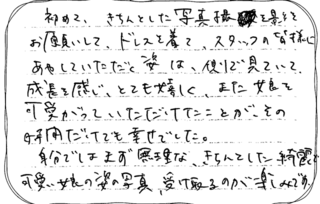 初めて、きちんとした写真撮を
お願いして、ドレスを着て、スタッフの皆様に
あやしていただく姿は、側で見ていて、
成長を感じ、とても嬉しく、また娘を
可愛がっていただけたことが、その
時間だけでも幸せでした。
自分ではまず無理な、きちんとした綺麗で
可愛い娘の姿の写真、受け取るのが楽しみです。